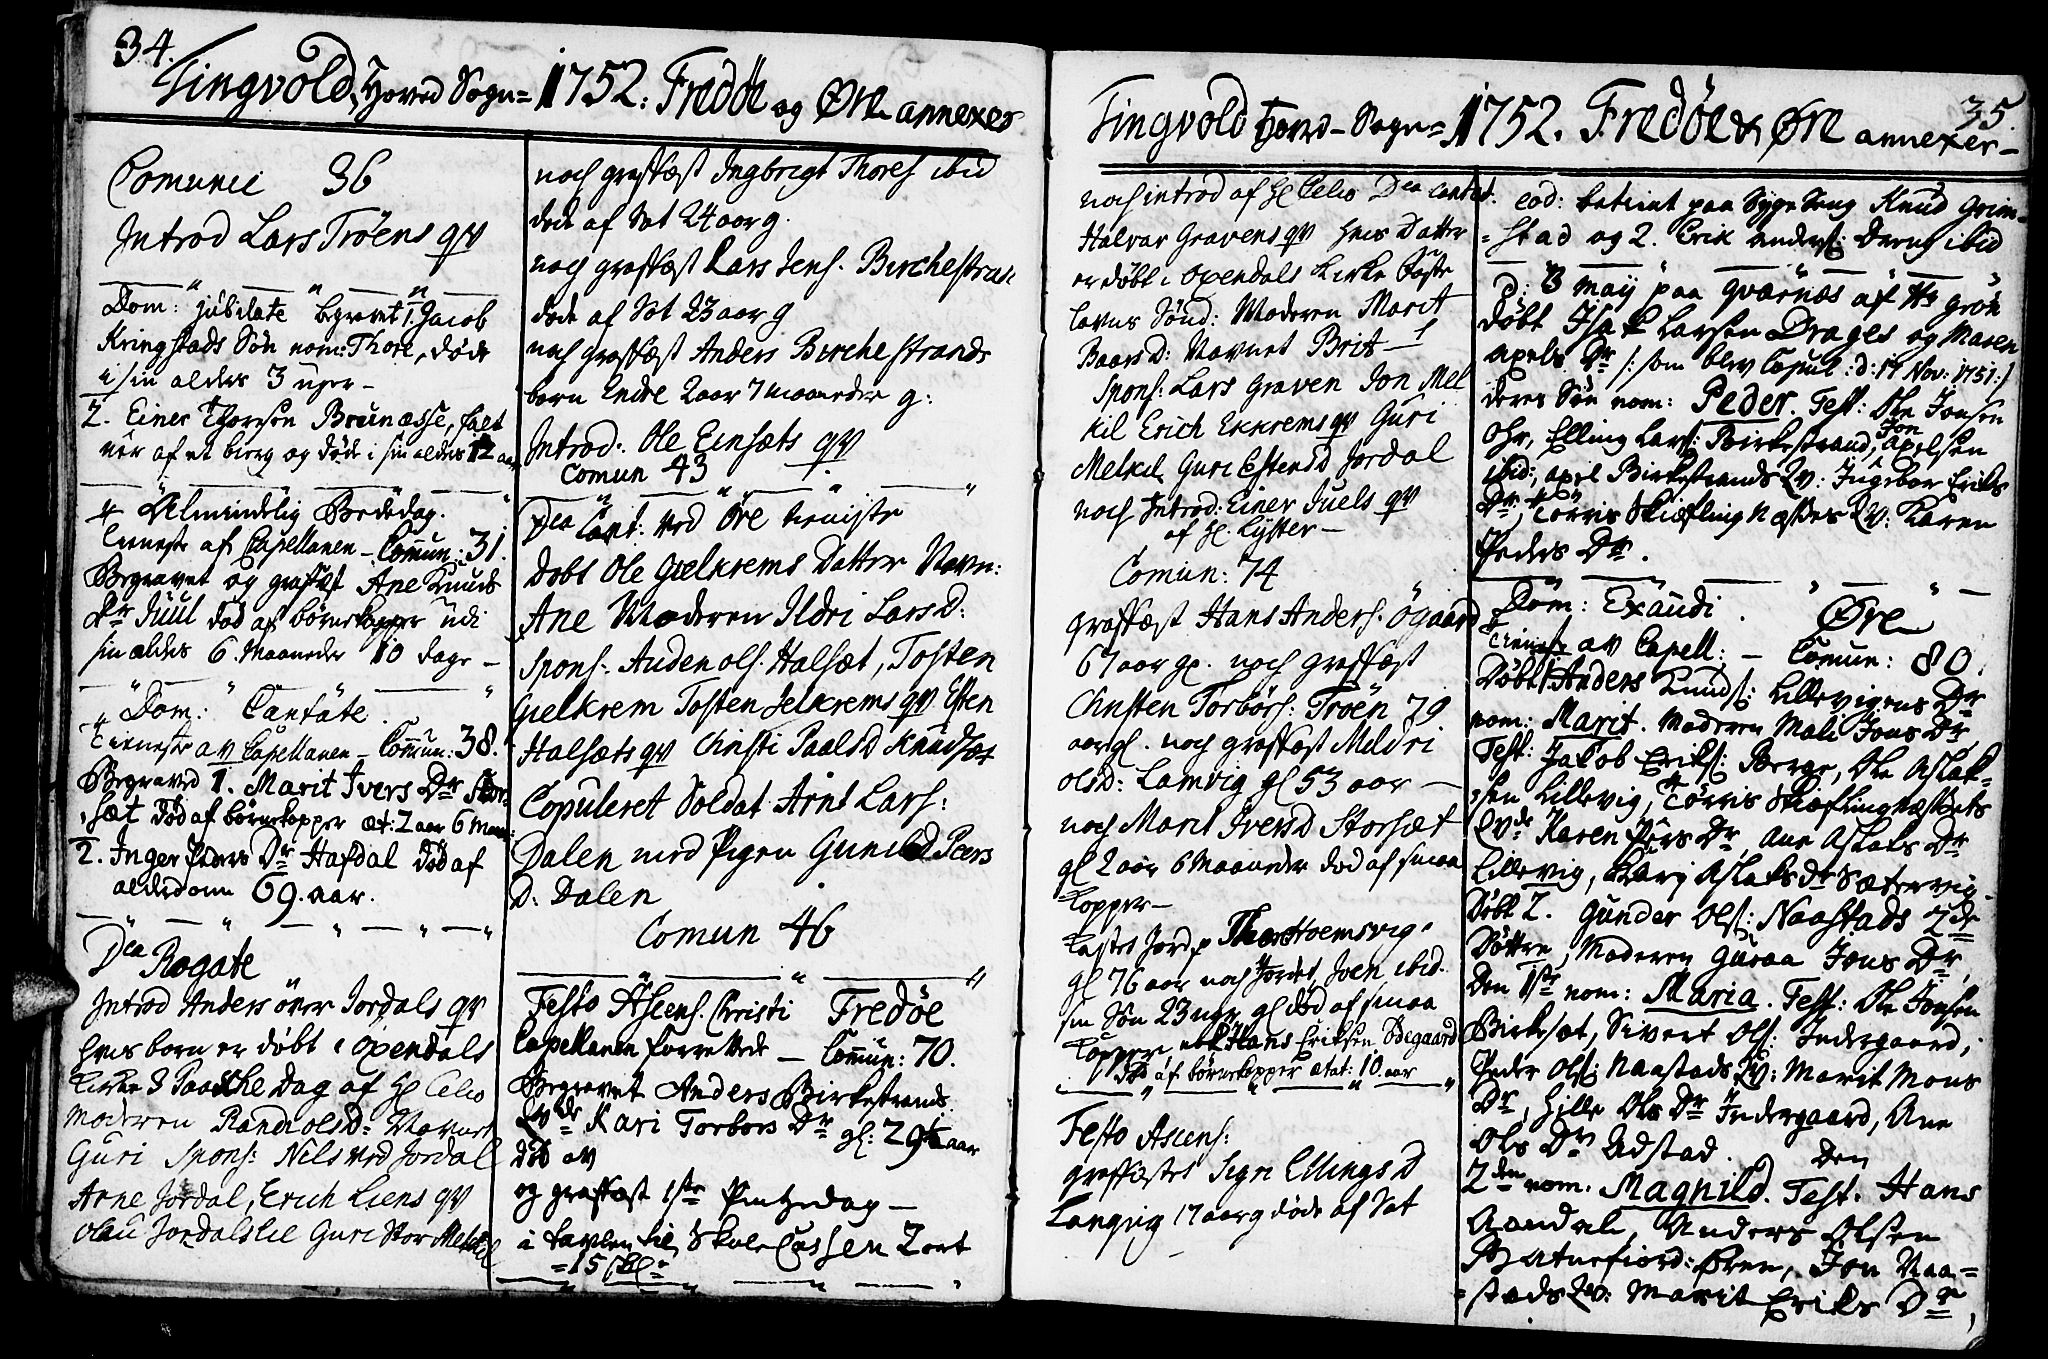 34.
Tingvold, Hoved Sogn = 1752: Fredøe og Øre annexer
Comunic 36
Introd Lars Trøens qv
Dom: Jubilate begravet 1. Jacob
Kringstads Søn nom: Thore, døde
i sin alders 3 uger –
2. Einer Thorsen Brunæsse, falt
ner af et bierg og døde i sin alders 12 aar
4 Almindelig Bededag.
Tieneste af Capellanen – Comun: 31.
Begravet og graffæst Ane Knuds
Dr Juul død af børnekopper udi
sin alders 6. Maaneder 10 dage –
4 Dom: Cantate.
Tieneste av Capellanen – Comun: 38.
Begraved 1. Marit Ivers Dr Stor-
sæt død af børnekopper æt: 2 aar 6 man:
2. Inger Peders Dr Hafdal død af
alderdom 69. aar.
Dca Rogate
Introd Anders øver Jordals qv
hvis barn er døbt i Øxendals
kirke 3 Paaske Dag af H Celio
Moderen Randi olsd: Navnet
Guri Spons: Nils ved Jordal
Arne Jordal, Erich Liens qv
Olau Jordalslie Guri Stor Melkil
noch graffæst Ingbrigt Thores ibid
døde af Sot 24 aar g.
noch graffæst Lars Jens. Birchestrand
døde af Sot 23 aar g
noch graffæst Anders Birchestrands
barn Endre 2 aar 7 maaneder g:
Introd: Ole Einsæts qv
Comun 43
Dca Cant: ved Øre tieniste
Døbt Ole Gielkrems Datter Navn:
Ane Moderen Ildri Lars D:
Spons: Auden ols. Halsæt, Tosten
Gielkrem Tosten Jelkrems qv Esten
Halsæts qv Christi Paalsd Knudsæt
Copuleret Soldat Arnt Lars:
Dalen med Pigen Gunild Peers
D. Dalen
Comun 46
Festo Ascens. Christi Fredøe
Capellanen forrettede – Comun: 70.
Begravet Anders Birkestrands
Qvde Kari Torbors Dr gl: 29½ aar
død av
og graffæst 1ste Pintzedag –
i tavlen til Skole Cassen 2 ort
=15 sk:=
Tingvold Hoved – Sogn = 1752. Fredøe & Øre annexer –
35.
noch introd af H Celio Dca Cantat.
Halvar Gravens qv hvis Datter
er døbt i Øxendals kirke
Favns Sønd: Moderen Marit
Baars D: Navnet Brit –
Spons: Lars Graven Jon Mel
kil Erich Ekkrems qv Guri
Melkil Guri Estensd Jordal
noch Introd: Einer Juels qv
af H. Lyster –
Comun: 74
graffæst Hans Anders. Øgaard
67 aar gl. noch graffæst
Christen Torbørs: Trøen 79
aar gl. noch graffæst Meldri
olsd: Lamvig gl 53 aar –
noch Marit Iversd Storsæt
gl 2 aar 6 Maaneder død af smaa
kopper –
kastet Jord p Thore Hoemsvig
gl 76 aar noch Jordet Joen ibid.
sin Søn 23 uger gl død af smaa
kopper, Hans Eriksen Ødegaard
død af børnekopper ætat: 10. aar
Festo Ascens:
grafføstet Sigri Ellings D
Langvig 17 aar g døde af Sot
eod: betient paa Syge Seng Knud Grim-
= stad og 2. Erik anders: Dereng ibid
d: 3 maij paa qvarnæs af Hr Grøn
Døbt Isach Larsen Drages og Maren
Apels Dr /: som blev Copul: d: 14 Nov: 1751:/
deres Søn nom: Peder. Test: Ole Jonsen
Ohr, Elling Lars: Birkestrand, Jon Apelsen
ibid:, apel Birkestrands Qv: Ingebor Eriks
Dr, Tørris Skieflingnæsses Qv: Karen
Peders Dr.
Dom: Exaudi. Øre
Tieneste av Capell: – Comun: 80.
Døbt Anders Knuds: Lillevigens Dr
nom: Marit. Moderen Mali Jons Dr
Test: Jakob Eriks: Berge, Ole Aslak-
sen Lillevig, Tørris Skieflingnæssets
Qvde Karen Pers Dr, Ane Aslaks Dr
Lillevig, Mary Aslaks dr Sætervig.
Døbt 2. Gunder Ols: Naastads 2de
Døttre, Moderen Guroa Jons Dr,
Den 1ste nom: Maria. Test: Ole Jonsen
Birkesæt, Sivert Ols: Indergaard,
Peder Ols: Naastads Qv: Marit Mons
Dr, Sille Ols Dr Indergaard, Ane
Ols Dr Udstad. Den
2den nom: Magnild. Test. Hans
Aandal, Anders Olsen
Batnefiord: Øren, Jon Naa=
= stads Qv: Marit Eriks Dr,